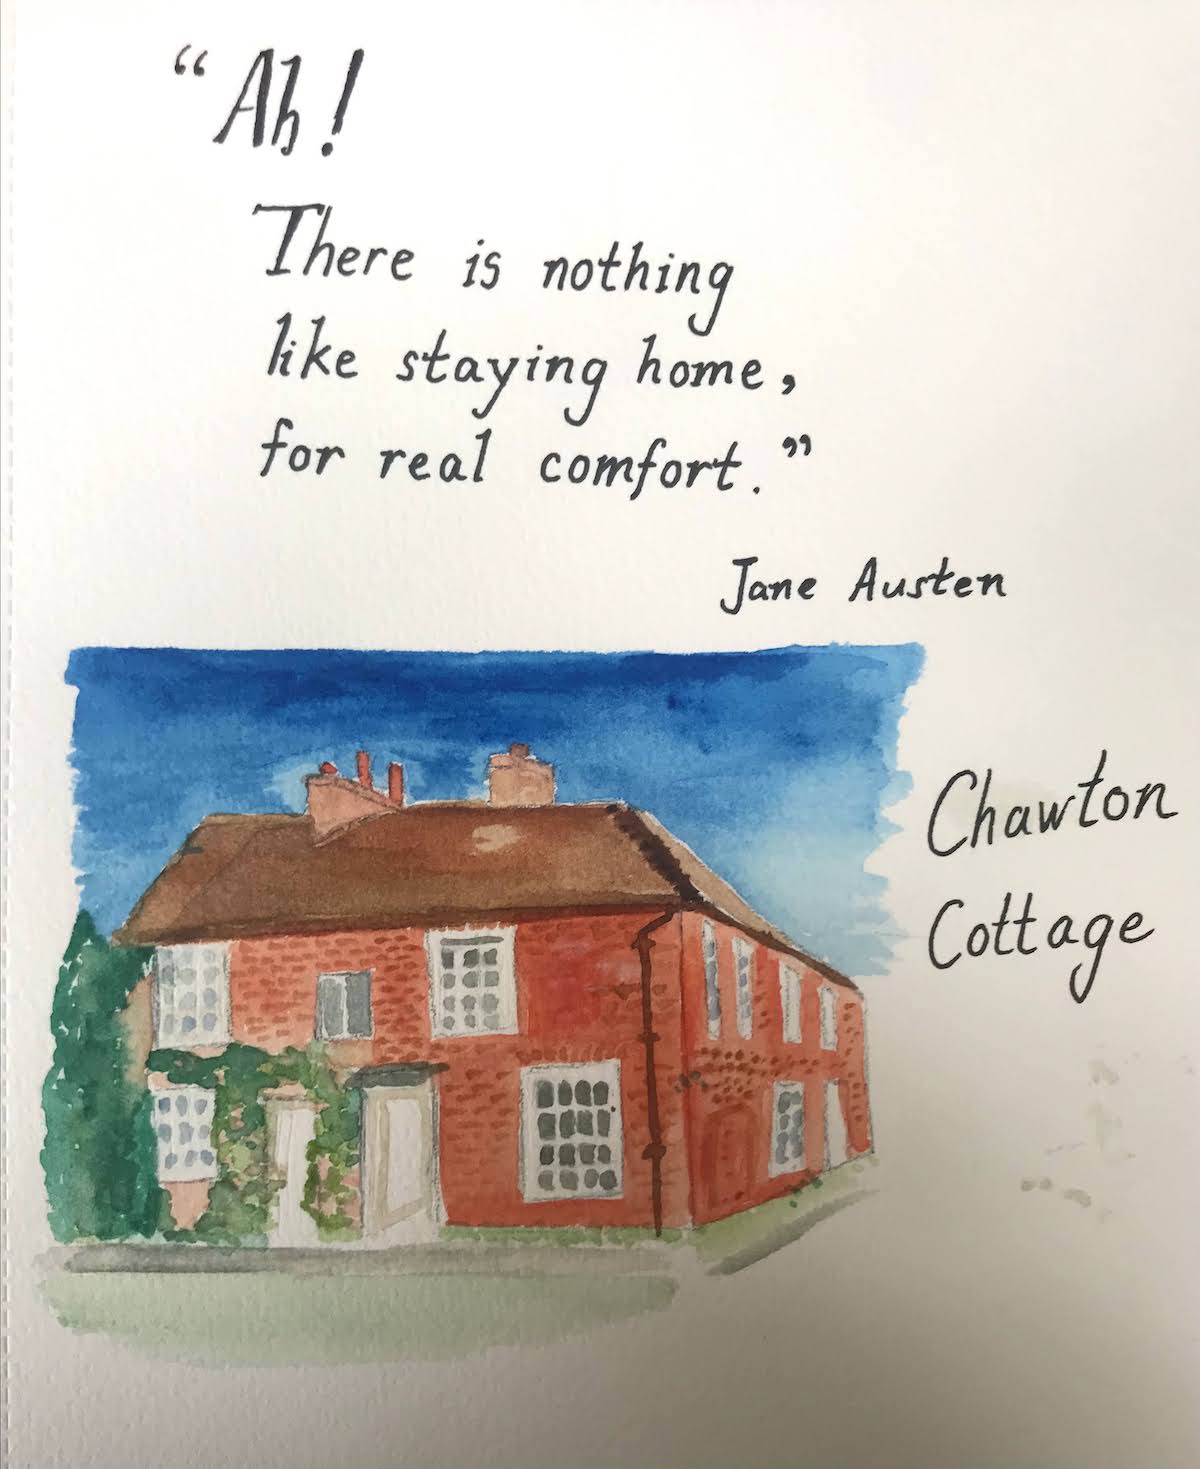 “Ah!
There is nothing
like staying home,
for real comfort.”
Jane Austen
Chawton
Cottage